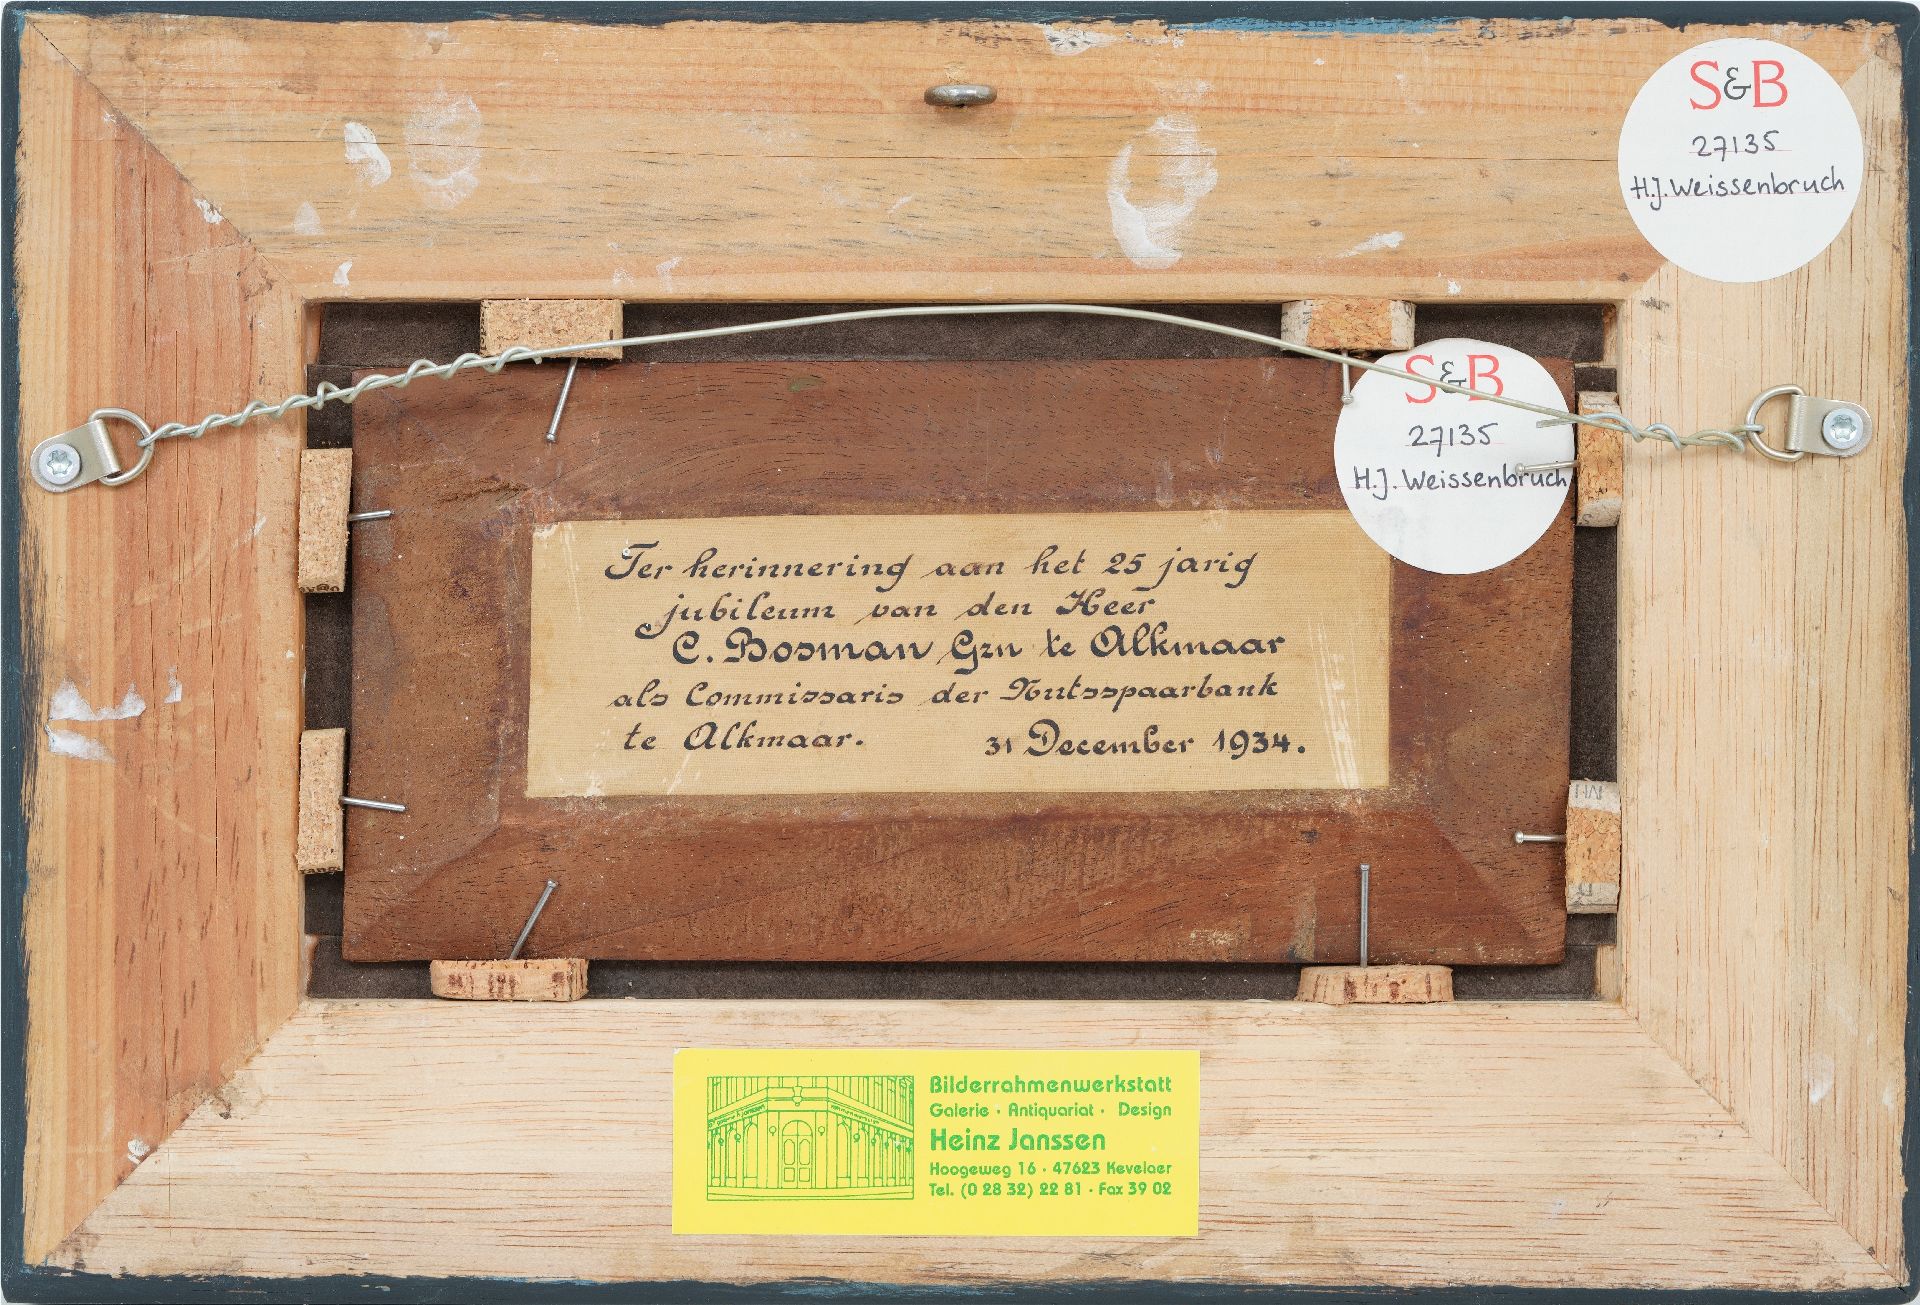 S&B
27135
H.J. Weissenbruch
S&B
27135
H.J. Weissenbruch
Ter herinnering aan het 25 jarig
jubileum van den Heer
C. Bosman Gzn te Alkmaar
als Commissaris der Nutsspaarbank
te Alkmaar. 31 December 1934.
Bilderrahmenwerkstatt
Galerie · Antiquariat · Design
Heinz Janssen
Hoogeweg 16 · 47623 Kevelaer
Tel. (0 28 32) 22 81 · Fax 39 02